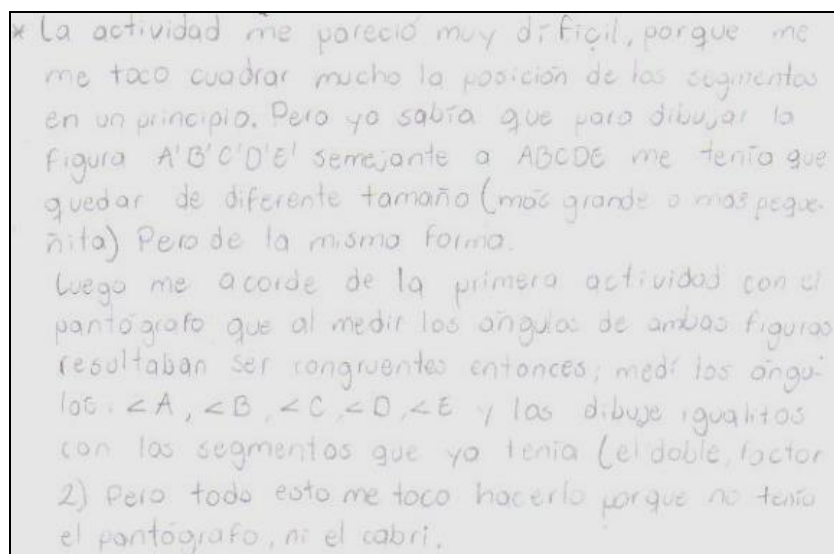 * La actividad me pareció muy difícil, porque me
me toco cuadrar mucho la posición de los segmentos
en un principio. Pero yo sabía que para dibujar la
figura A'B'C'D'E' semejante a ABCDE me tenía que
quedar de diferente tamaño (más grande o mas peque-
ñita) Pero de la misma forma.
Luego me acorde de la primera actividad con el
pantógrafo que al medir los ángulos de ambas figuras
resultaban ser congruentes entonces; medí los ángu-
los: ∠A, ∠B, ∠C, ∠D, ∠E y los dibuje igualitos
con los segmentos que ya tenía (el doble, factor
2) Pero todo esto me toco hacerlo porque no tenía
el pantógrafo, ni el cabri.